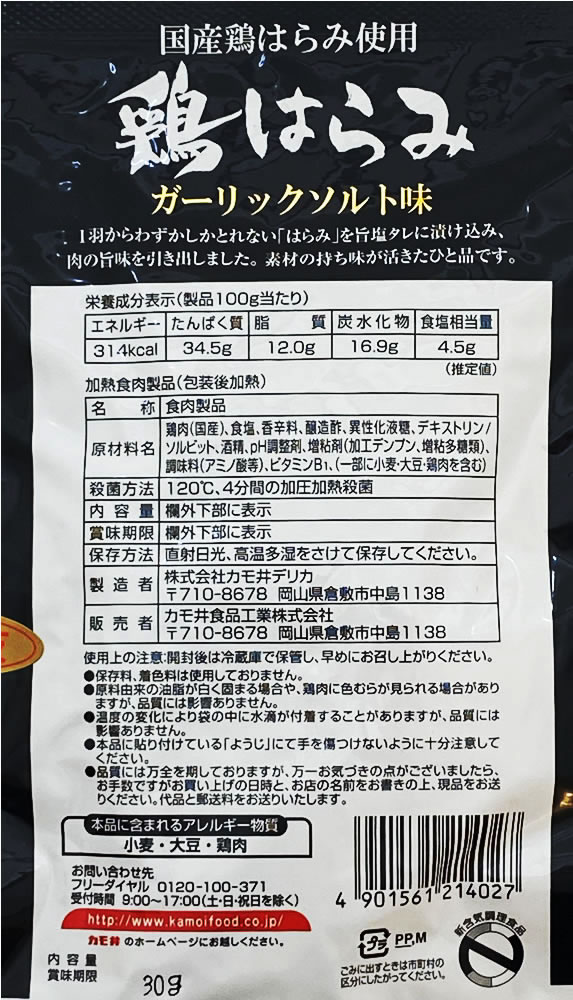 国産鶏はらみ使用
鶏はらみ
ガーリックソルト味
1羽からわずかしかとれない「はらみ」を旨塩タレに漬け込み、
肉の旨味を引き出しました。素材の持ち味が活きたひと品です。
栄養成分表示(製品100g当たり)
エネルギー たんぱく質 脂質 炭水化物 食塩相当量
314kcal 34.5g 12.0g 16.9g 4.5g
(推定値)
加熱食肉製品(包装後加熱)
名称 食肉製品
原材料名 鶏肉(国産)、食塩、香辛料、醸造酢、異性化液糖、デキストリン/
ソルビット、酒精、pH調整剤、増粘剤(加工デンプン、増粘多糖類)、
調味料(アミノ酸等)、ビタミンB1、(一部に小麦・大豆・鶏肉を含む)
殺菌方法 120℃、4分間の加圧加熱殺菌
内容量 欄外下部に表示
賞味期限 欄外下部に表示
保存方法 直射日光、高温多湿をさけて保存してください。
製造者 株式会社カモ井デリカ
〒710-8678 岡山県倉敷市中島1138
販売者 カモ井食品工業株式会社
〒710-8678 岡山県倉敷市中島1138
使用上の注意:開封後は冷蔵庫で保管し、早めにお召し上がりください。
●保存料、着色料は使用しておりません。
●原料由来の油脂が白く固まる場合や、鶏肉に色むらが見られる場合があり
ますが、品質には影響ありません。
●温度の変化により袋の中に水滴が付着することがありますが、品質には
影響ありません。
●本品に貼り付けている「ようじ」にて手を傷つけないように十分注意して
ください。
●品質には万全を期しておりますが、万一お気づきの点がございましたら、
お手数ですがお買い上げの日時と、お店の名前をお書きの上、現品をお送
りください。代品と郵送料をお送りいたします。
本品に含まれるアレルギー物質
小麦・大豆・鶏肉
お問い合わせ先
フリーダイヤル 0120-100-371
受付時間 9:00〜17:00(土・日・祝日を除く)
http://www.kamoifood.co.jp/
カモ井のホームページにお越しください。
4 901561 214027
プラ PP,M
ごみに出すときは市町村の
区分にしたがってください。
新含気調理食品
内容量 30g
賞味期限